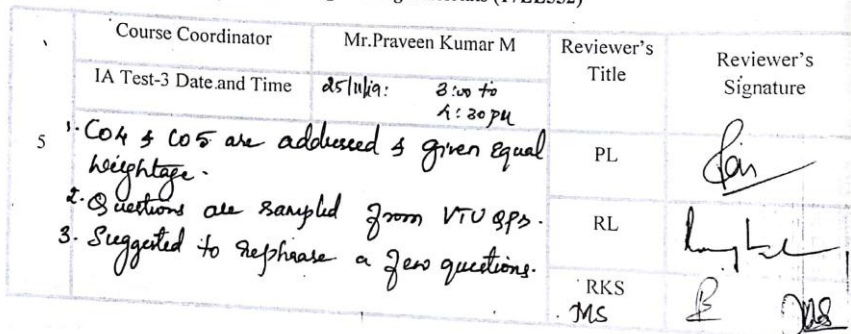 Course Coordinator Mr.Praveen Kumar M Reviewer's Title Reviewer's Signature
IA Test-3 Date and Time 25/11/19: 3:00 to 4:30 PM
5 1. CO4 & CO5 are addressed & given equal weightage. PL
2. Questions are sampled from VTU QPs. RL
3. Suggested to rephrase a few questions. RKS
MS